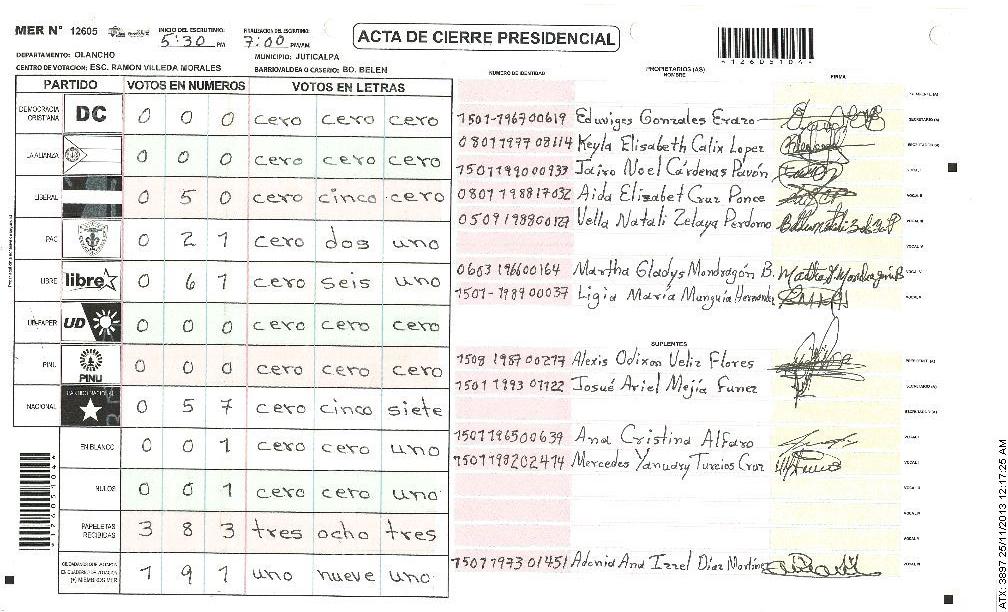 MER N° 12605 INICIO DEL ESCRUTINIO: 5:30 PM FINALIZACION DEL ESCRUTINIO: 7:00 PM/AM
ACTA DE CIERRE PRESIDENCIAL
*12605104*
DEPARTAMENTO: OLANCHO MUNICIPIO: JUTICALPA
CENTRO DE VOTACION: ESC. RAMON VILLEDA MORALES BARRIO/ALDEA O CASERIO: BO. BELEN
PARTIDO VOTOS EN NUMEROS VOTOS EN LETRAS
DEMOCRACIA CRISTIANA DC 0 0 0 cero cero cero
LA ALIANZA 0 0 0 cero cero cero
LIBERAL 0 5 0 cero cinco cero
PAC 0 2 1 cero dos uno
LIBRE libre 0 6 1 cero seis uno
UD-FAPER UD 0 0 0 cero cero cero
PINU PINU 0 0 0 cero cero cero
NACIONAL PARTIDO NACIONAL 0 5 7 cero cinco siete
EN BLANCO 0 0 1 cero cero uno
NULOS 0 0 1 cero cero uno
PAPELETAS RECIBIDAS 3 8 3 tres ocho tres
1 9 1 uno nueve uno
NUMERO DE IDENTIDAD PROPIETARIOS (AS) NOMBRE FIRMA
1501-196700619 Eduviges Gonzales Erazo
0801197708114 Keyla Elisabeth Calix Lopez
1501199000933 Jairo Noel Cárdenas Pavón
0801198817032 Aida Elizabet Cruz Ponce
Vella Natali Zelaya Perdomo
0603196600164 Martha Gladys Mondragón B.
1501-198900037 Ligia María Munguía Hernandez
SUPLENTES
1508198700277 Alexis Odixon Veliz Flores
1501199301122 Josué Ariel Mejía Funez
1501196500639 Ana Cristina Alfaro
1501198202414 Mercedes Turcios Cruz
1501197301451
ATX: 3897 25/11/2013 12:17:25 AM